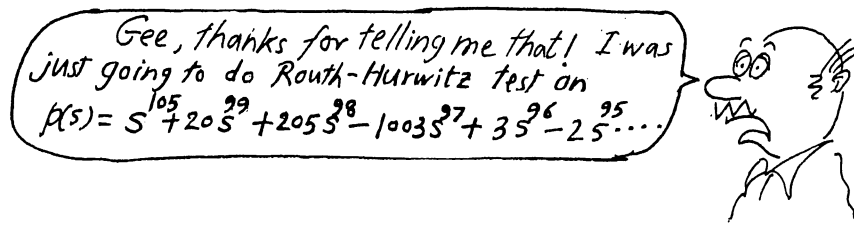 Gee, thanks for telling me that! I was
just going to do Routh-Hurwitz test on
p(s) = s^105 + 20s^99 + 205s^98 - 1003s^97 + 3s^96 - 2s^95....